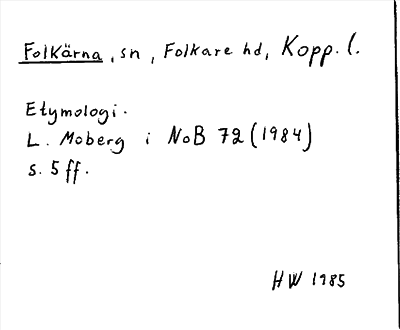 Folkärna, sn, Folkare hd, Kopp. l.
Etymologi.
L. Moberg i NoB 72 (1984)
s. 5 ff.
HW 1985